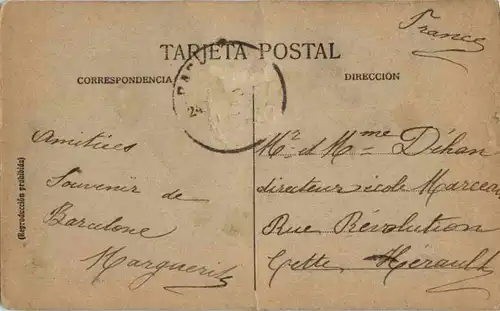 France
TARJETA POSTAL
CORRESPONDENCIA
DIRECCIÓN
24
(Reproducción prohibida)
Amitiées
Souvenir de
Barcelone
Marguerite
Mr et Mme Déhan
directeur école Marceau
Rue Révolution
Cette Hérault